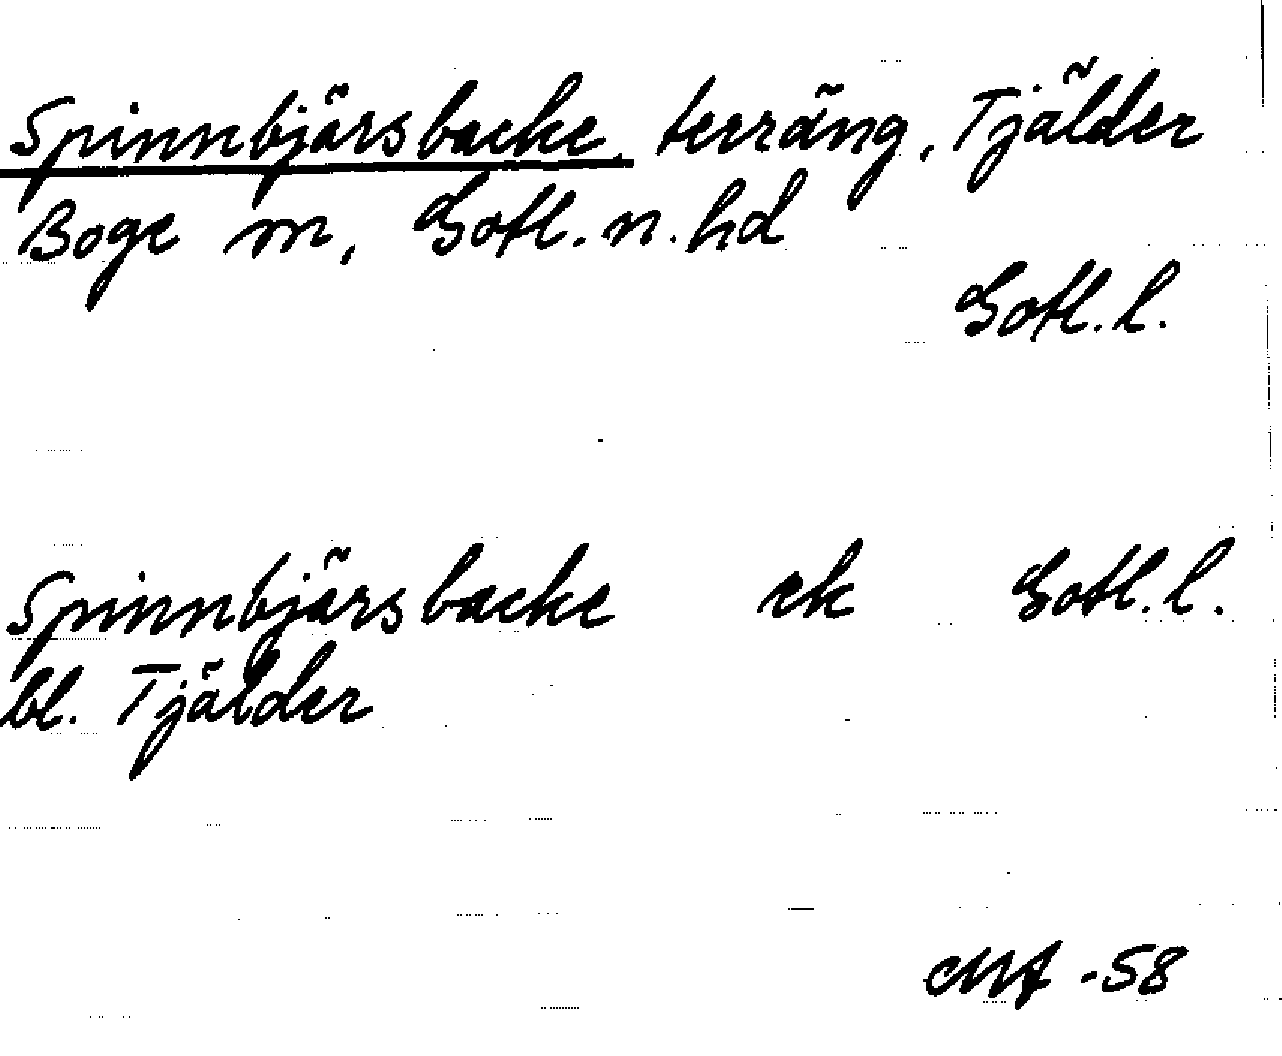 Spinnbjärsbacke, terräng, Tjälder
Boge sn, Gotl. n. hd
Gotl. l.
Spinnbjärsbacke ek Gotl. l.
bl. Tjälder
-58